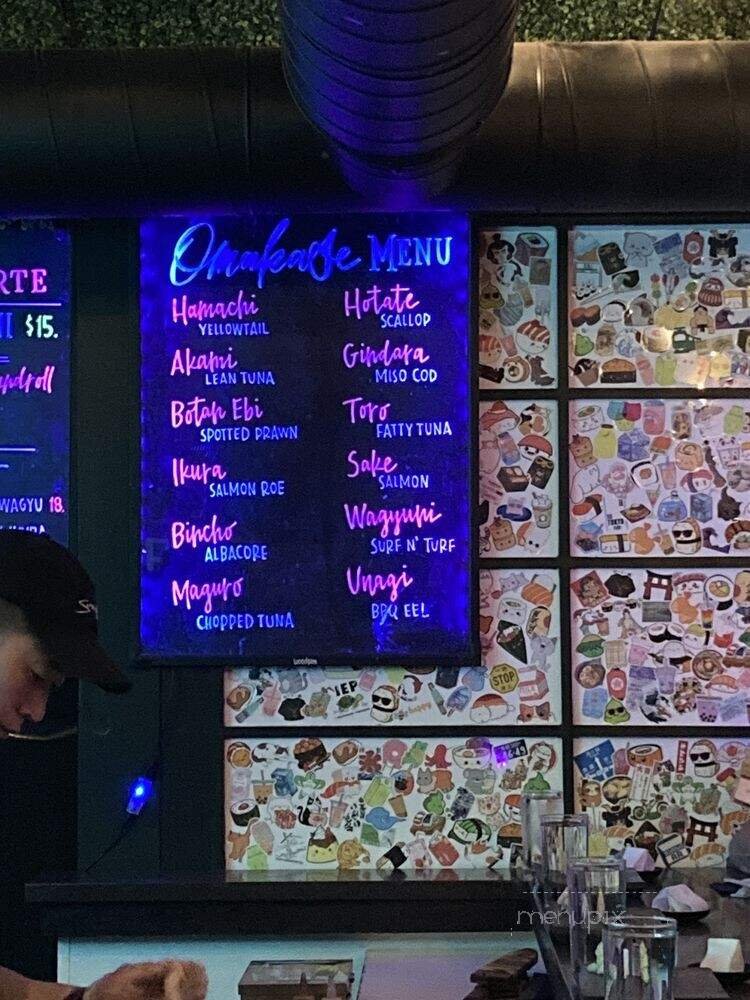 RTE
I $15.
ndroll
WAGYU 18.
Omakase MENU
Hamachi
YELLOWTAIL
Akami
LEAN TUNA
Botan Ebi
SPOTTED PRAWN
Ikura
SALMON ROE
Bincho
ALBACORE
Maguro
CHOPPED TUNA
Hotate
SCALLOP
Gindara
MISO COD
Toro
FATTY TUNA
Sake
SALMON
Wagyuni
SURF N' TURF
Unagi
BBQ EEL
STOP
TOKYO
menupix